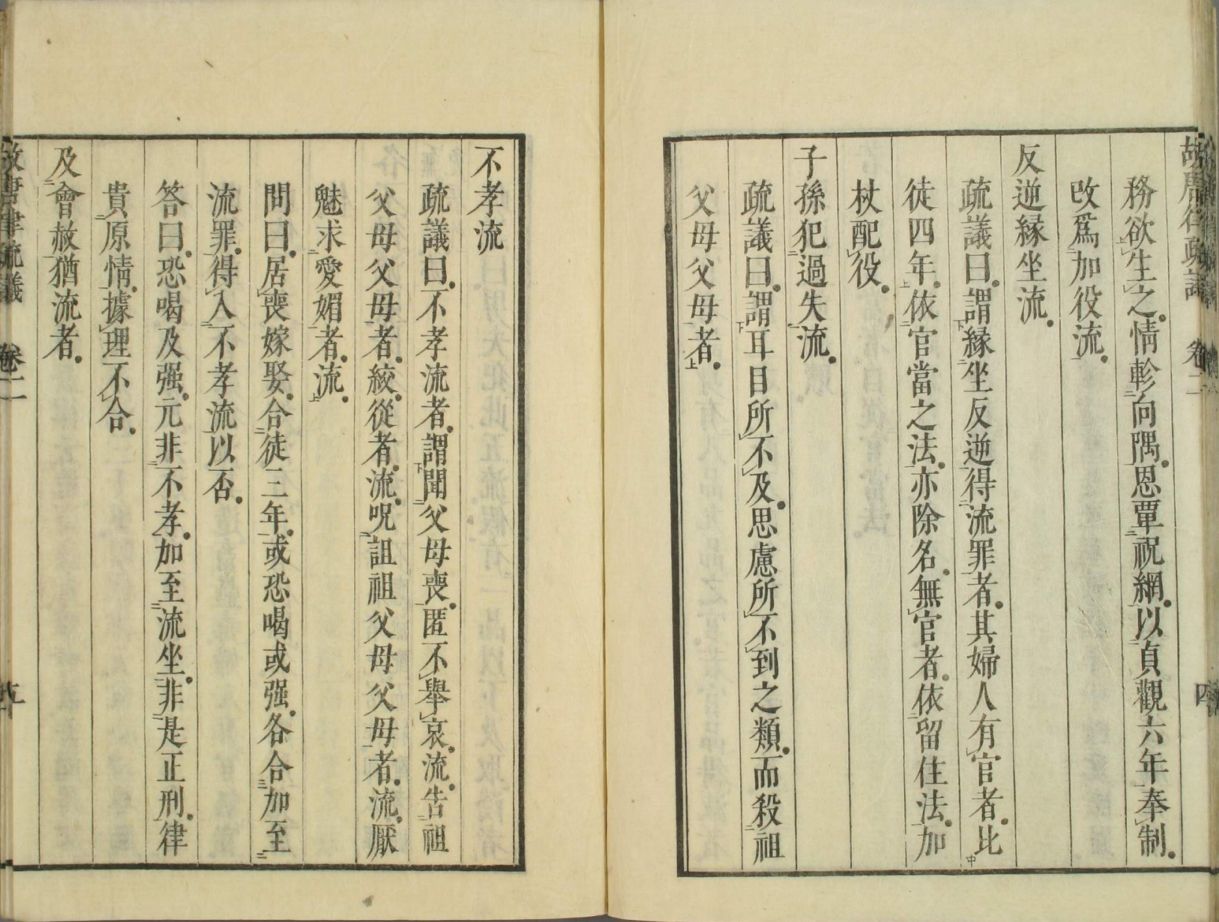 務欲生之。情軫向隅。恩覃祝網。以貞觀六年奉制。
改爲加役流。
反逆緣坐流。
疏議曰。謂緣坐反逆得流罪者。其婦人有官者。比
徒四年。依官當之法。亦除名。無官者。依留住法。加
杖配役。
子孫犯過失流。
疏議曰。謂耳目所不及。思慮所不到之類。而殺祖
父母父母者。
不孝流
疏議曰。不孝流者。謂聞父母喪。匿不舉哀。流。告祖
父母父母者。絞。從者。流。呪詛祖父母父母者。流。厭
魅求愛媚者。流。
問曰。居喪嫁娶。合徒三年。或恐喝或强。各合加至
流罪。得入不孝流以否。
答曰。恐喝及强。元非不孝。加至流坐。非是正刑。律
貴原情。據理不合。
及會赦猶流者。
故唐律疏議 卷二